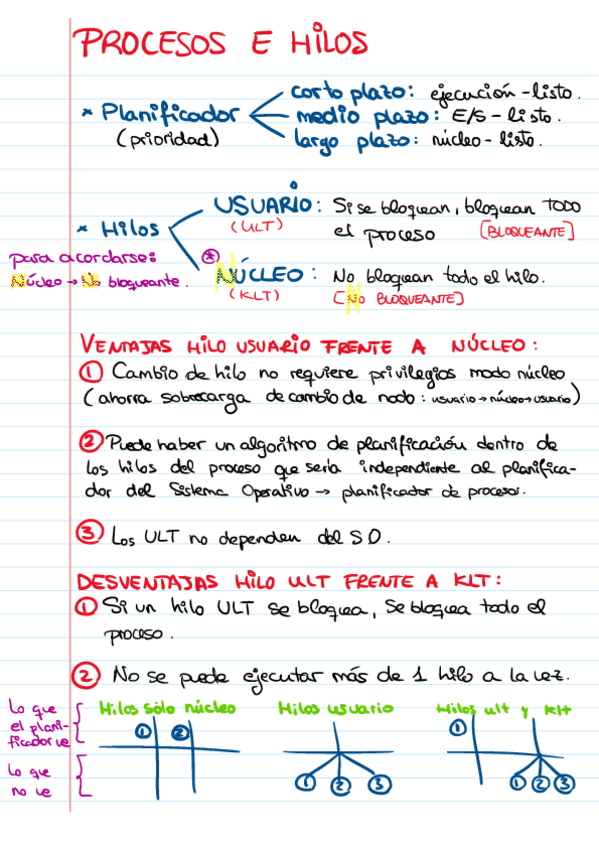 PROCESOS E HILOS
corto plazo: ejecución - listo.
* Planificador medio plazo: E/S - listo.
(prioridad) largo plazo: núcleo - listo.
USUARIO: Si se bloquean, bloquean TODO
* Hilos (ULT) el proceso [BLOQUEANTE]
para acordarse:
Núcleo → No bloqueante.
* NÚCLEO: No bloquean todo el hilo.
(KLT) [No BLOQUEANTE]
VENTAJAS HILO USUARIO FRENTE A NÚCLEO:
① Cambio de hilo no requiere privilegios modo núcleo
(ahorra sobrecarga de cambio de modo: usuario → núcleo → usuario)
② Puede haber un algoritmo de planificación dentro de
los hilos del proceso que sería independiente al planifica-
dor del Sistema Operativo → planificador de procesos.
③ Los ULT no dependen del S.O.
DESVENTAJAS HILO ULT FRENTE A KLT:
① Si un hilo ULT se bloquea, se bloquea todo el
proceso.
② No se puede ejecutar más de 1 hilo a la vez.
Lo que
el plani-
ficador ve
Lo que
no ve
Hilos sólo núcleo
① ②
Hilos usuario
① ② ③
Hilos ult y klt
①
① ② ③